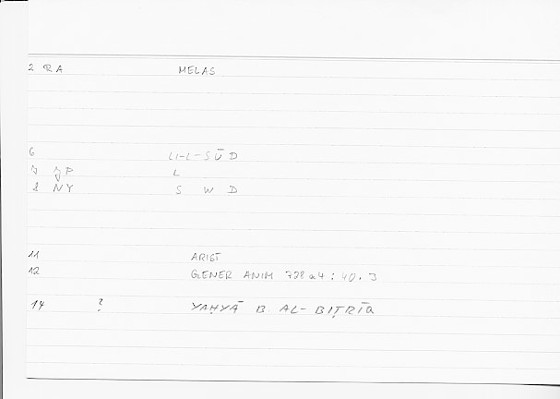 2 RA MELAS
6 LI-L-SŪD
7 JP L
8 NY S W D
11 ARIST
12 GENER ANIM 728a4 : 40.3
14 ? YAḤYĀ B AL-BIṬRĪQ